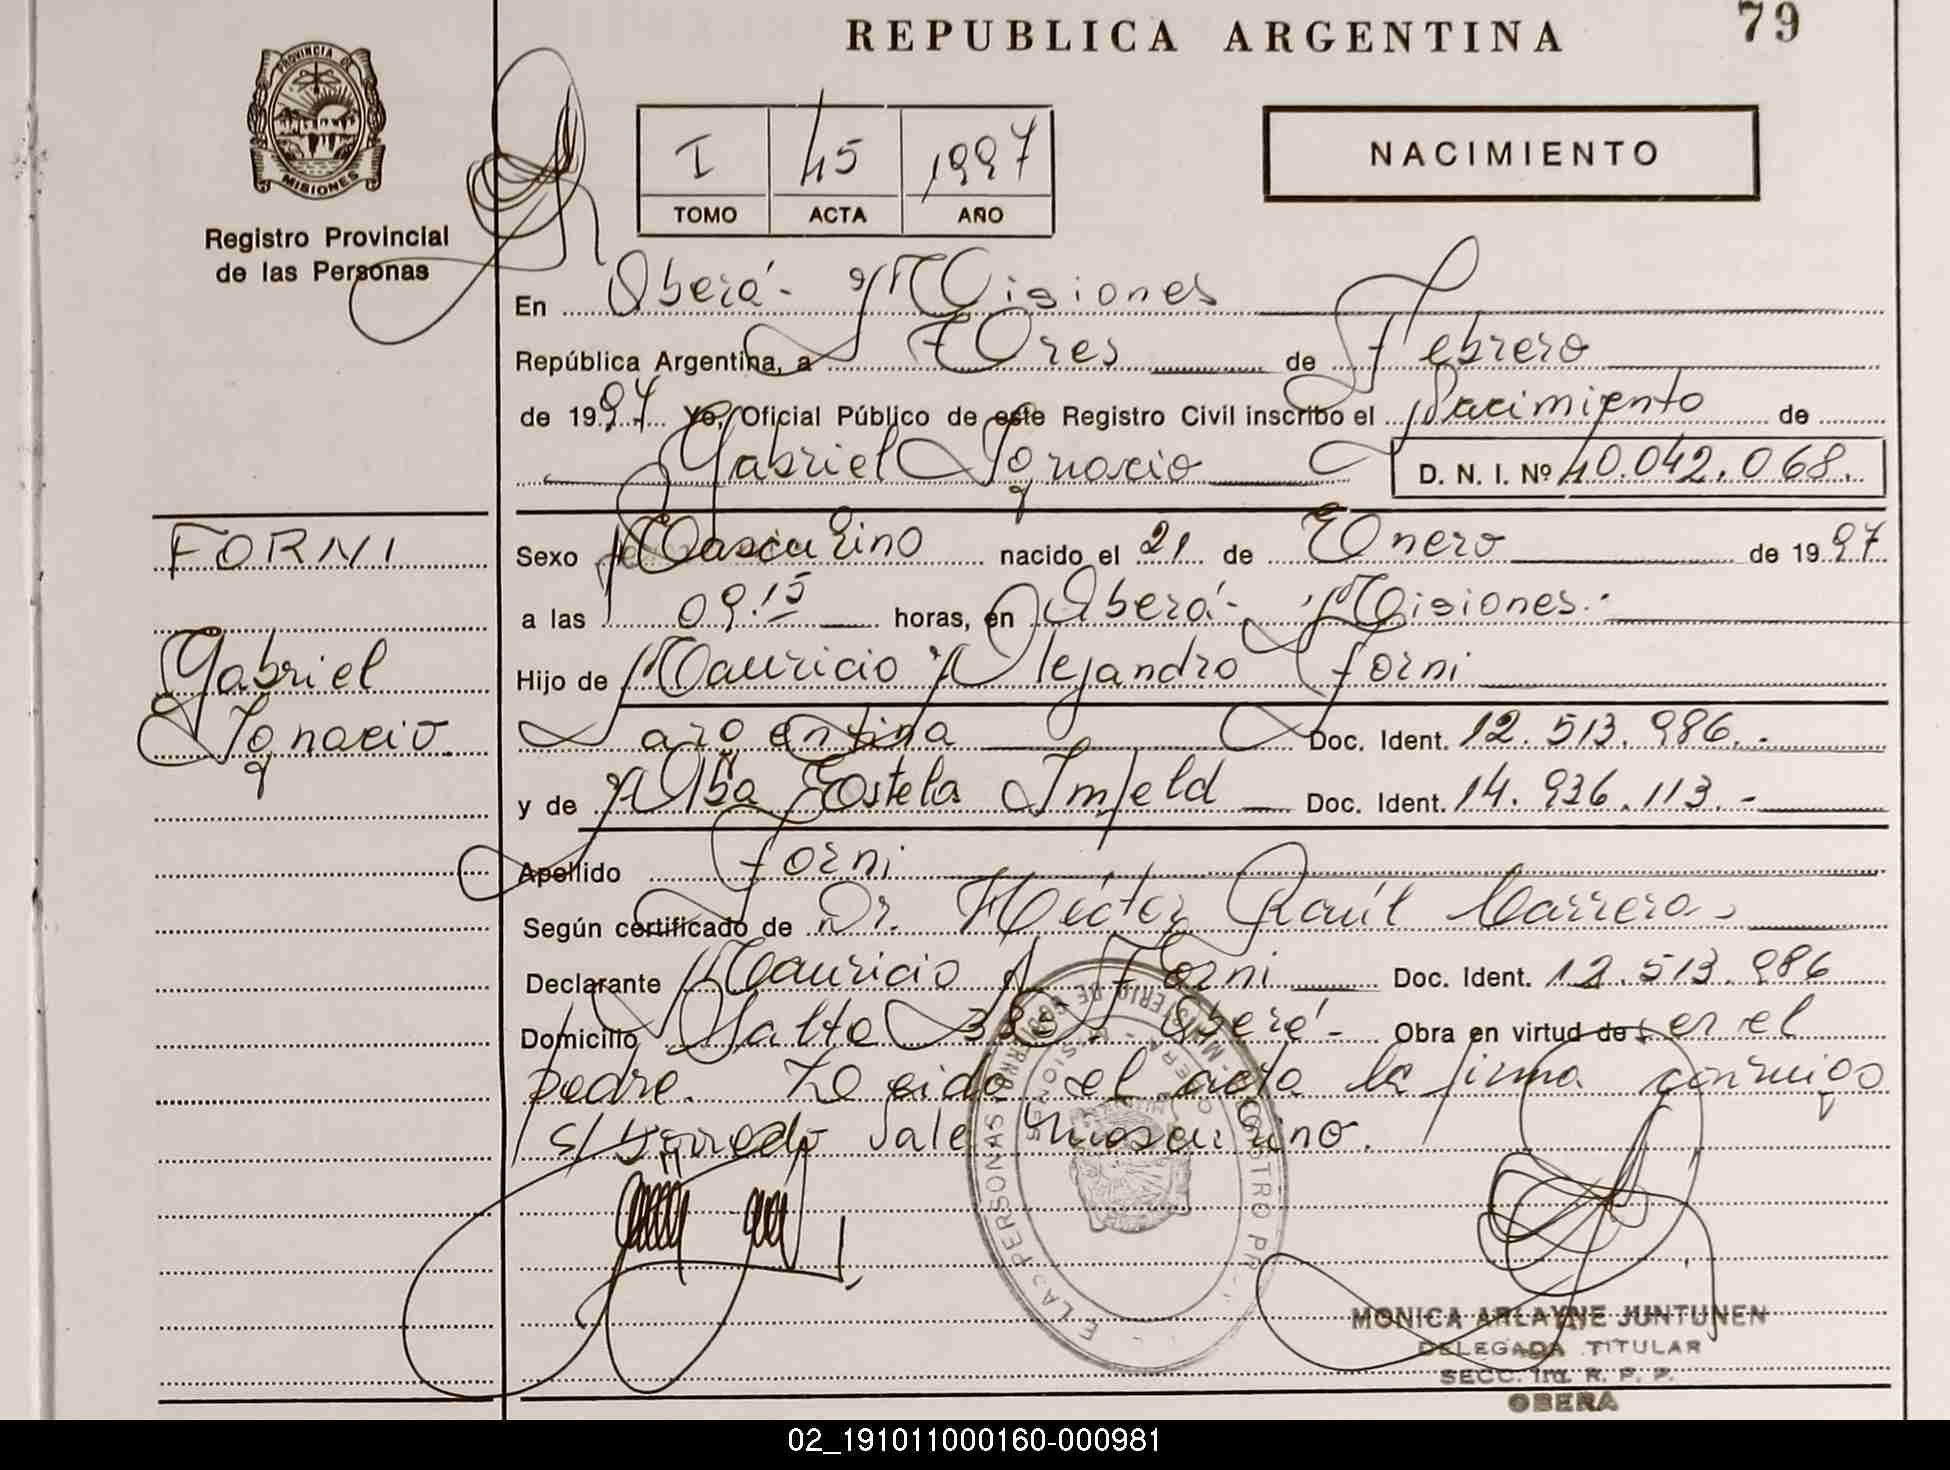 REPUBLICA ARGENTINA
79
PROVINCIA DE
MISIONES
Registro Provincial
de las Personas
I 45 1997
TOMO ACTA AÑO
NACIMIENTO
En Oberá - Misiones
República Argentina, a Tres de Febrero
de 1997 Yo, Oficial Público de este Registro Civil inscribo el Nacimiento de
Gabriel Ignacio D. N. I. Nº 40.042.068.
FORNI
Gabriel
Ignacio
Sexo Masculino nacido el 21 de Enero de 1997
a las 09.15 horas, en Oberá - Misiones.
Hijo de Mauricio Alejandro Forni
argentina Doc. Ident. 12.513.986.-
y de Alba Estela Imfeld Doc. Ident. 14.936.113.-
Apellido Forni
Según certificado de Dr. Héctor Raúl Carrera
Declarante Mauricio A Forni Doc. Ident. 12.513.986
Domicilio Salto Oberá - Obra en virtud de ser el
padre. Leida el acta la firma conmigo
s/ borrado vale Masculino.
MONICA ARLAYNE JUNTUNEN
DELEGADA TITULAR
SECC. R. P. P.
OBERA
02_191011000160-000981